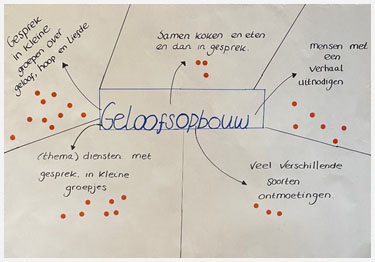 Gesprek
in kleine
groepen over
geloof, hoop en liefde
Samen koken en eten
en dan in gesprek.
mensen met
een
verhaal
uitnodigen
Geloofsopbouw
(thema) diensten met
gesprek. in kleine
groepjes
Veel verschillende
soorten
ontmoetingen.